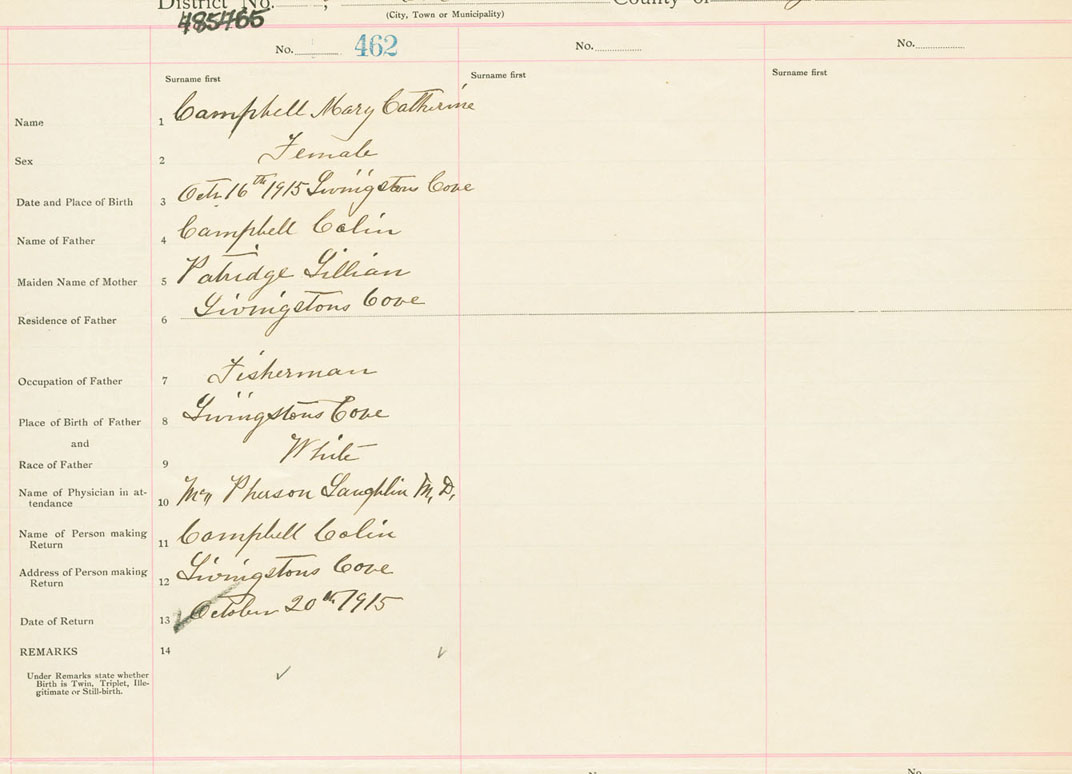 District No. ; County of
(City, Town or Municipality)
485465
No. 462
No.
No.
Surname first
Surname first
Surname first
Name 1 Campbell Mary Catherine
Sex 2 Female
Date and Place of Birth 3 Oct. 16th 1915 Livingstons Cove
Name of Father 4 Campbell Colin
Maiden Name of Mother 5 Patridge Lillian
Residence of Father 6 Livingstons Cove
Occupation of Father 7 Fisherman
Place of Birth of Father 8 Livingstons Cove
and
Race of Father 9 White
Name of Physician in at-
tendance 10 Pherson Laughlin M. D.
Name of Person making
Return 11 Campbell Colin
Address of Person making
Return 12 Livingstons Cove
Date of Return 13 October 20th 1915
REMARKS 14
Under Remarks state whether
Birth is Twin, Triplet, Ille-
gitimate or Still-birth.
No.
No.